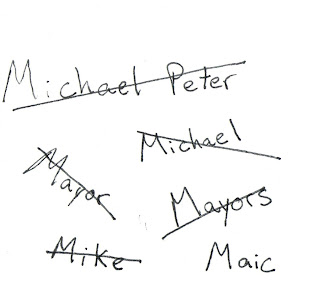 Michael Peter
Michael
Mayor
Mayors
Mike
Maic